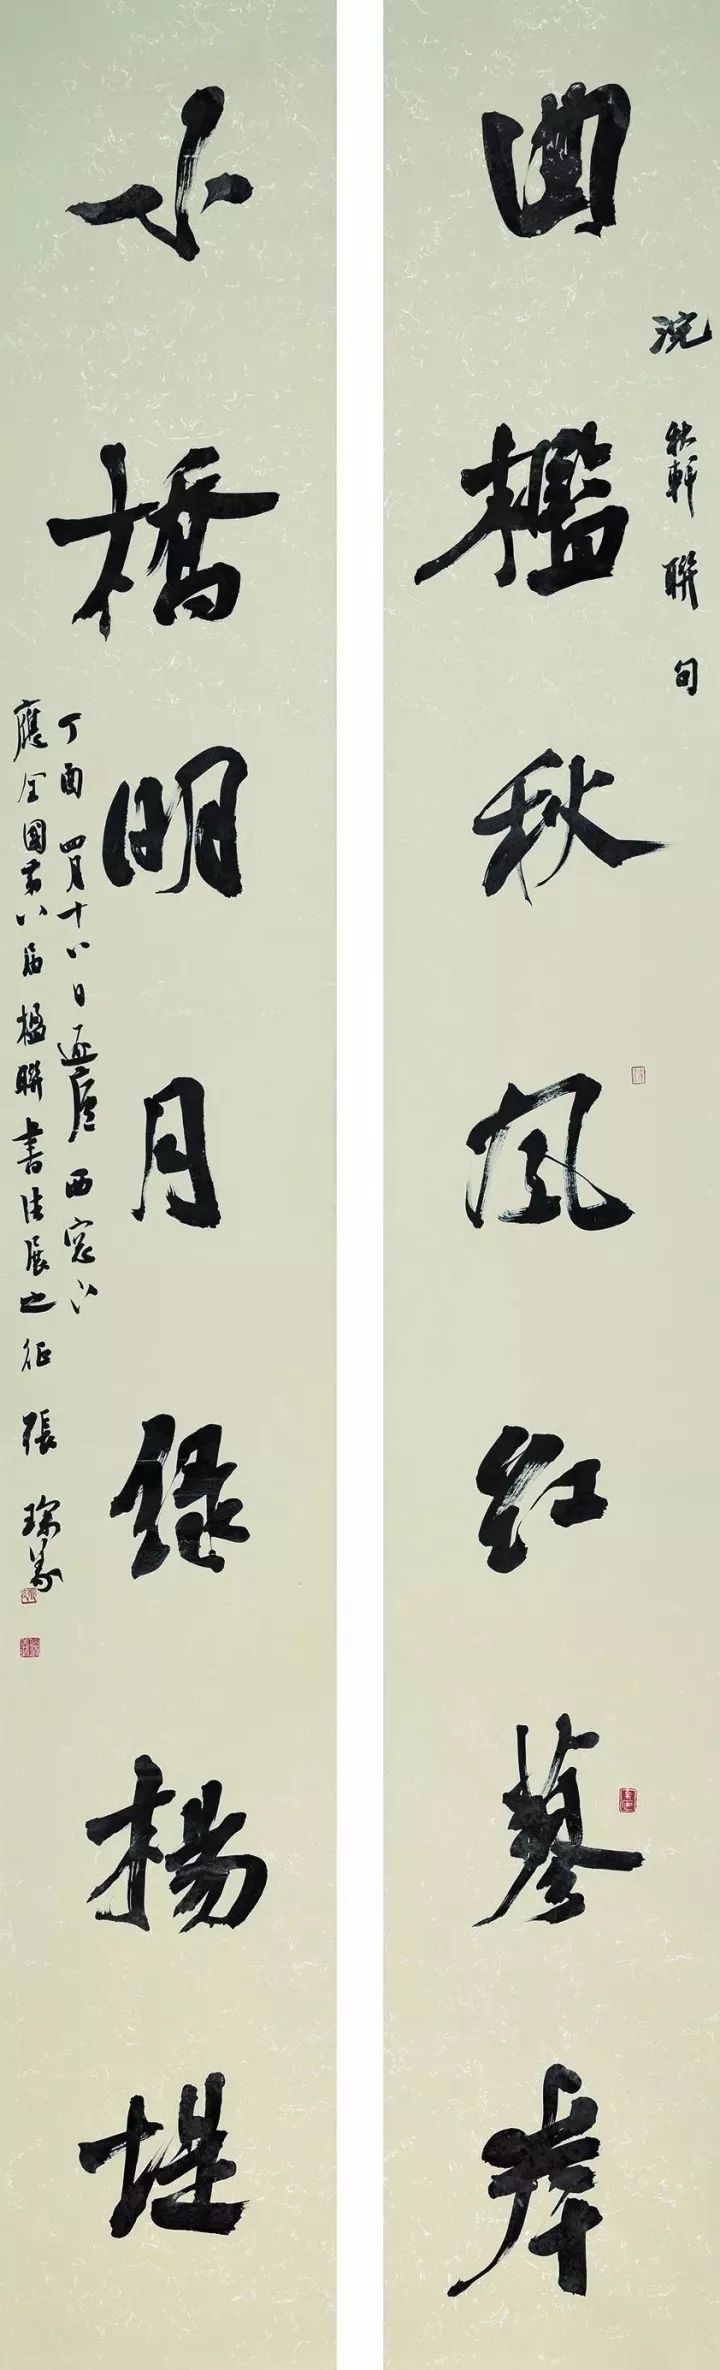 曲檻秋風红蓼岸
浣秋軒聯句
小橋明月绿楊堤
丁酉四月十八日 西窓下
應全國第八届楹聯書法展之征 張